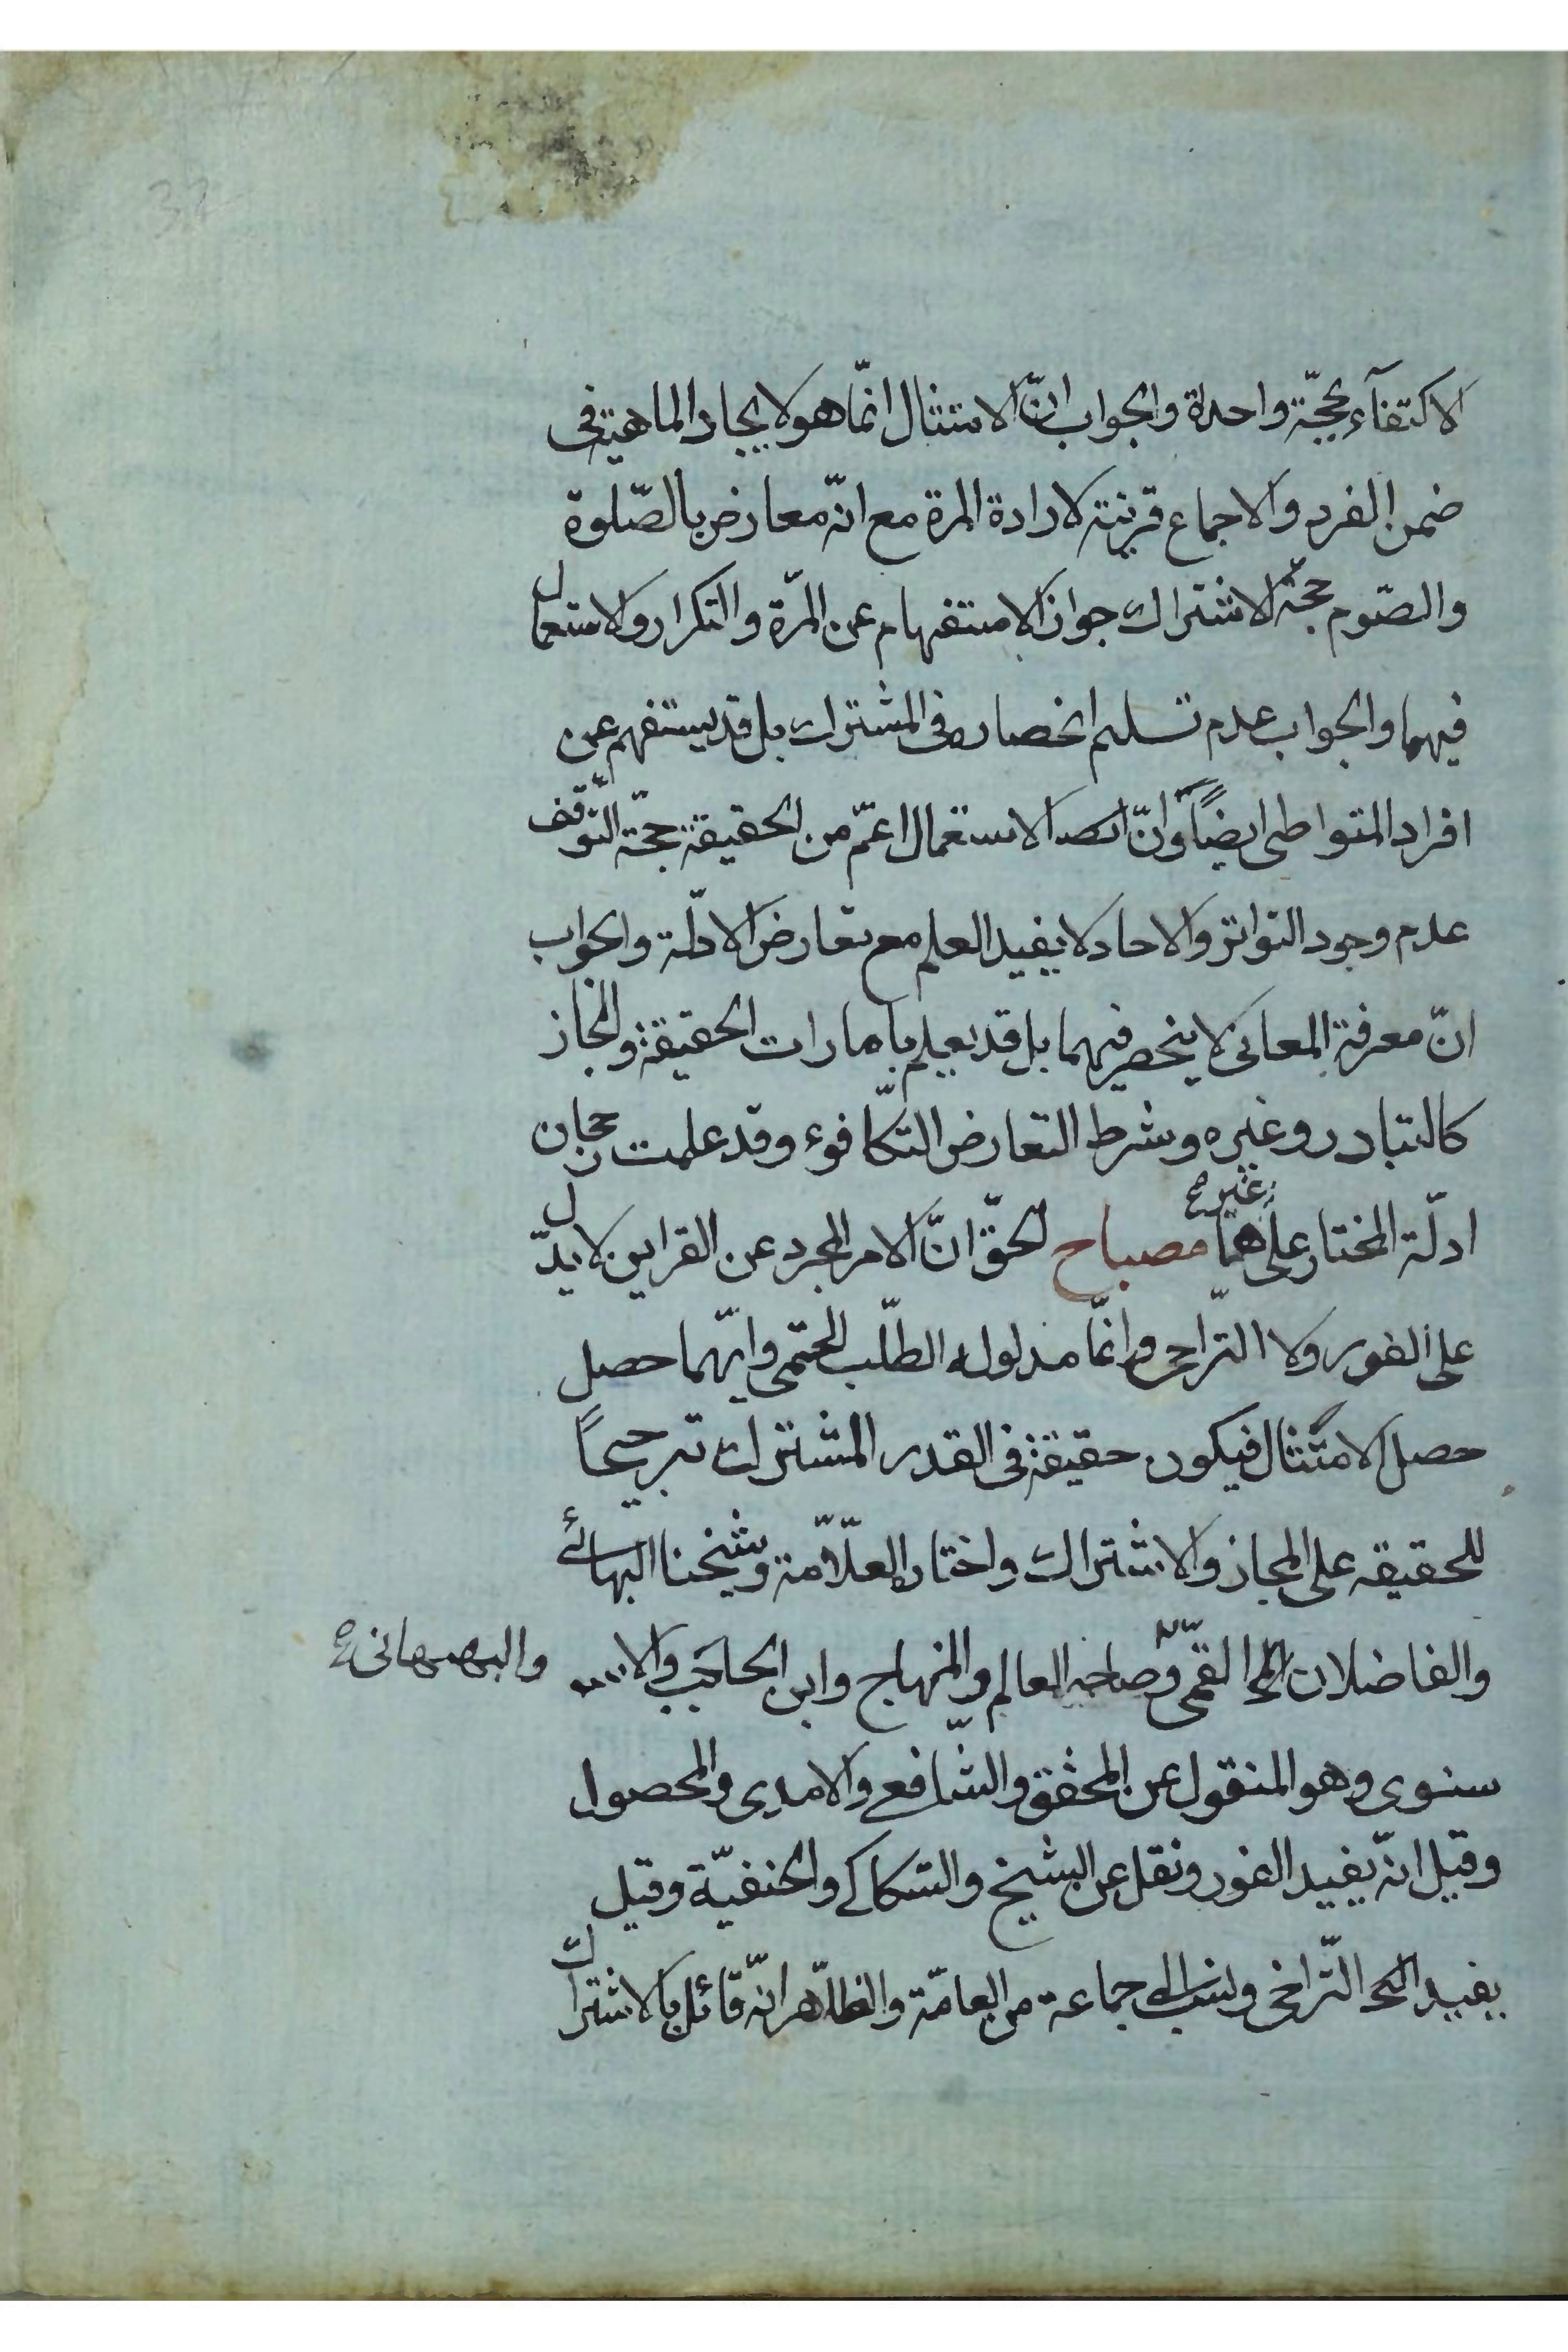 الاكتفآء بحجّة واحدة والجواب انّ الامتثال انّما هو لايجاد الماهية فى
ضمن الفرد والاجماع قرينة لارادة المرة مع انّه معارض بالصّلوة
والصّوم حجّة الاشتراك جواز الاستفهام عن المرّة والتكرار والاستعمال
فيهما والجواب عدم تسليم انحصاره فى المشترك بل قد يستفهم عن
افراد المتواطى ايضاً وانّ الاستعمال اعمّ من الحقيقة حجّة التّوقّف
عدم وجود التواتر والاحاد لا يفيد العلم مع تعارض الادلّة والجواب
انّ معرفة المعانى لا ينحصر فيهما بل قد يعلم بامارات الحقيقة والمجاز
كالتبادر وغيره وشرط التعارض التكّافوء وقد علمت رجحان
ادلّة المختار على غيرها مصباح الحقّ انّ الامر المجرد عن القراين لا يدلّ
على الفور ولا التّراخى وانّما مدلوله الطّلب الحتمى وايّهما حصل
حصل الامتثال فيكون حقيقة فى القدر المشترك ترجيحاً
للحقيقه على المجاز والاشتراك واختاره العلّامة وشيخنا البهائے
والفاضلان القمّى وصاحب العالم والمنهاج وابن الحاجب والا والبهبهانى
سنوى وهو المنقول عن المحقق والشّافعے والامدى والمحصول
وقيل انّه يفيد الفور ونقل عن الشيخ والسّكاكے والحنفيّة وقيل
يفيد التّراخى ونسب الى جماعة من العامّة والظّاهر انّه قائل بالاشتراك